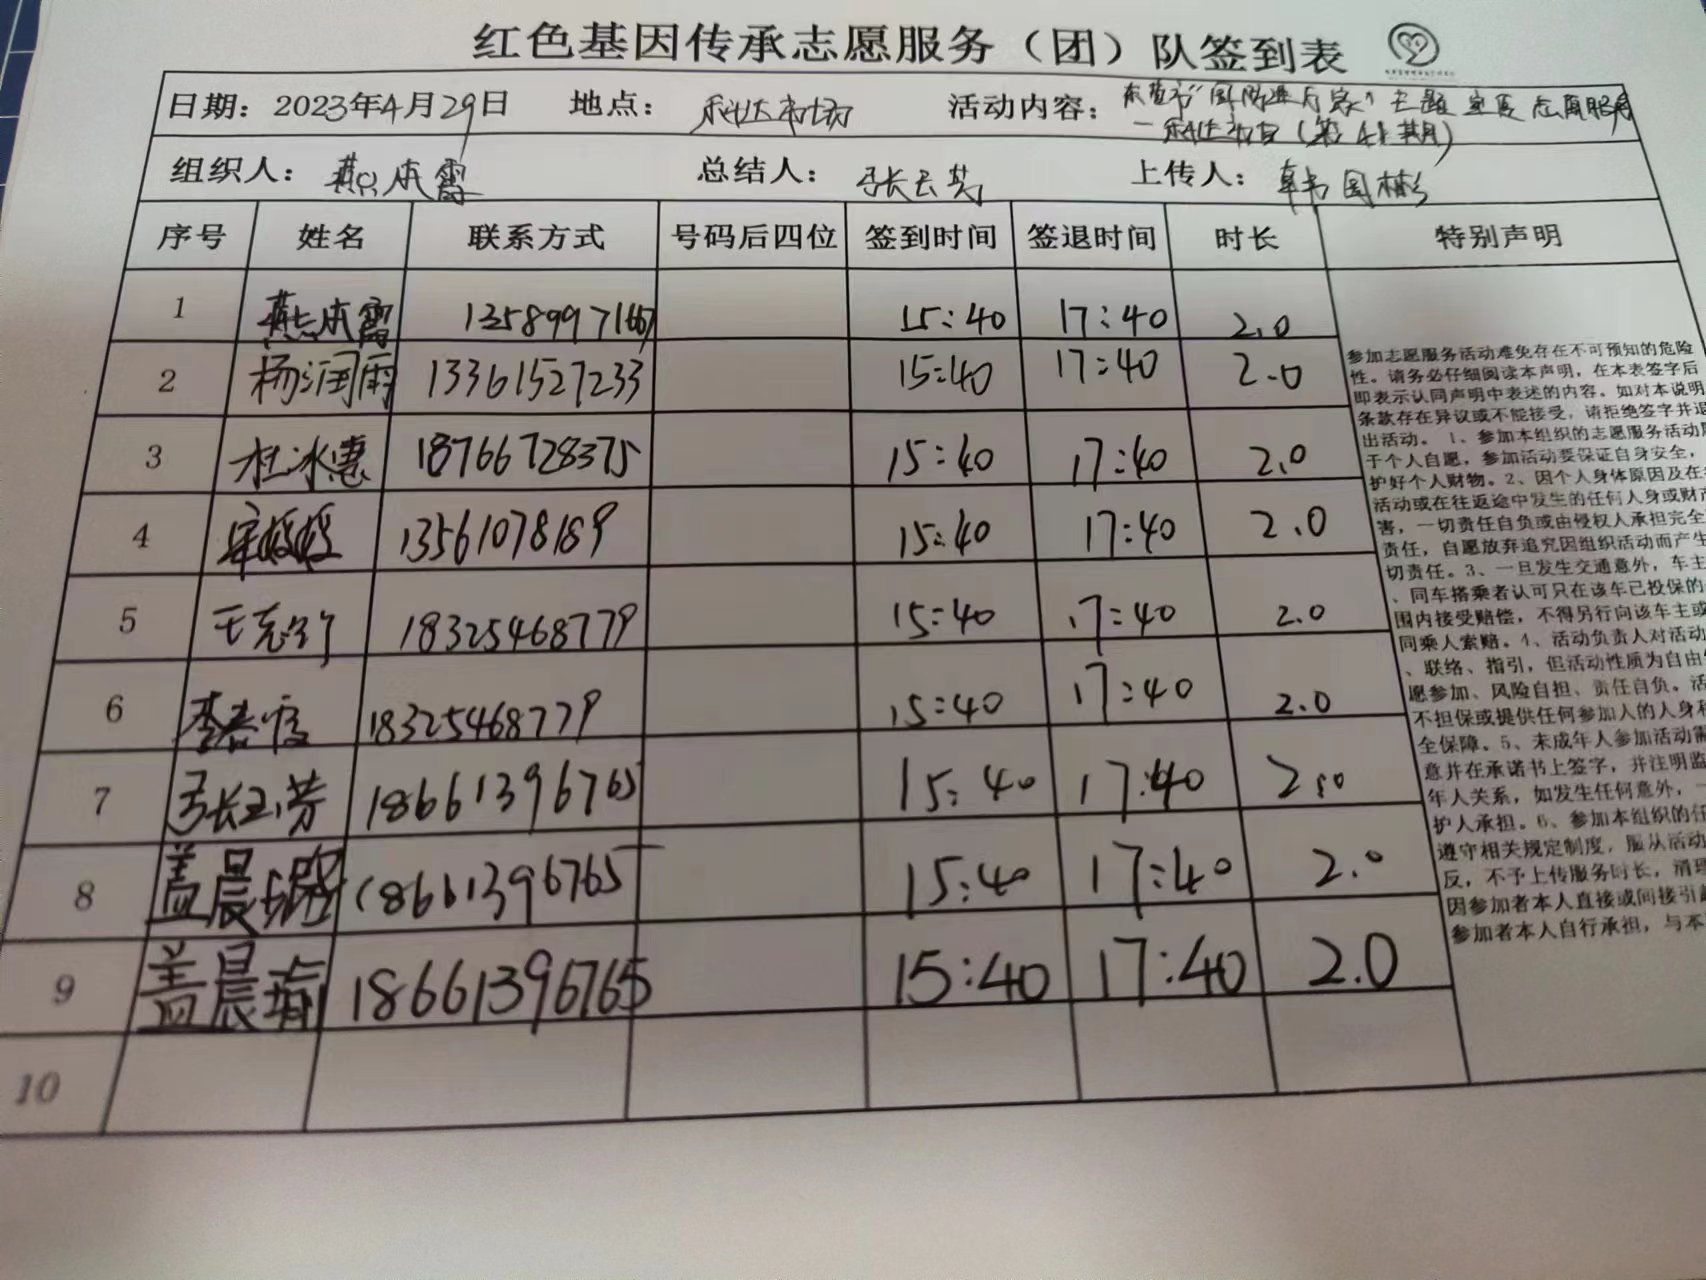 红色基因传承志愿服务（团）队签到表
日期：2023年4月29日 地点：科达市场 活动内容：东营市"国防进万家"主题宣传志愿服务
一科达市场（第41期）
组织人：燕本霞 总结人：张云芳 上传人：韩国彬
序号 姓名 联系方式 号码后四位 签到时间 签退时间 时长 特别声明
1 13589971667 15:40 17:40 2.0
2 杨润雨 13361527233 15:40 17:40 2.0
3 杜冰惠 18766728375 15:40 17:40 2.0
4 13561078189 15:40 17:40 2.0
5 18325468779 15:40 17:40 2.0
6 李春霞 18325468779 15:40 17:40 2.0
7 张云芳 18661396765 15:40 17:40 2.0
8 盖晨璐 18661396765 15:40 17:40 2.0
9 盖晨瑜 18661396765 15:40 17:40 2.0
10
参加志愿服务活动难免存在不可预知的危险
性。请务必仔细阅读本声明，在本表签字后
即表示认同声明中表述的内容。如对本说明
条款存在异议或不能接受，请拒绝签字并退
出活动。1、参加本组织的志愿服务活动属
于个人自愿，参加活动要保证自身安全，
护好个人财物。2、因个人身体原因及在
活动或在往返途中发生的任何人身或财产
害，一切责任自负或由侵权人承担完全
责任，自愿放弃追究因组织活动而产生
切责任。3、一旦发生交通意外，车主
、同车搭乘者认可只在该车已投保的
围内接受赔偿，不得另行向该车主或
同乘人索赔。4、活动负责人对活动
、联络、指引，但活动性质为自由
愿参加、风险自担、责任自负。活
不担保或提供任何参加人的人身和
全保障。5、未成年人参加活动需
意并在承诺书上签字，并注明监
年人关系，如发生任何意外，一
护人承担。6、参加本组织的任
遵守相关规定制度，服从活动
反，不予上传服务时长，清理
因参加者本人直接或间接引起
参加者本人自行承担，与本